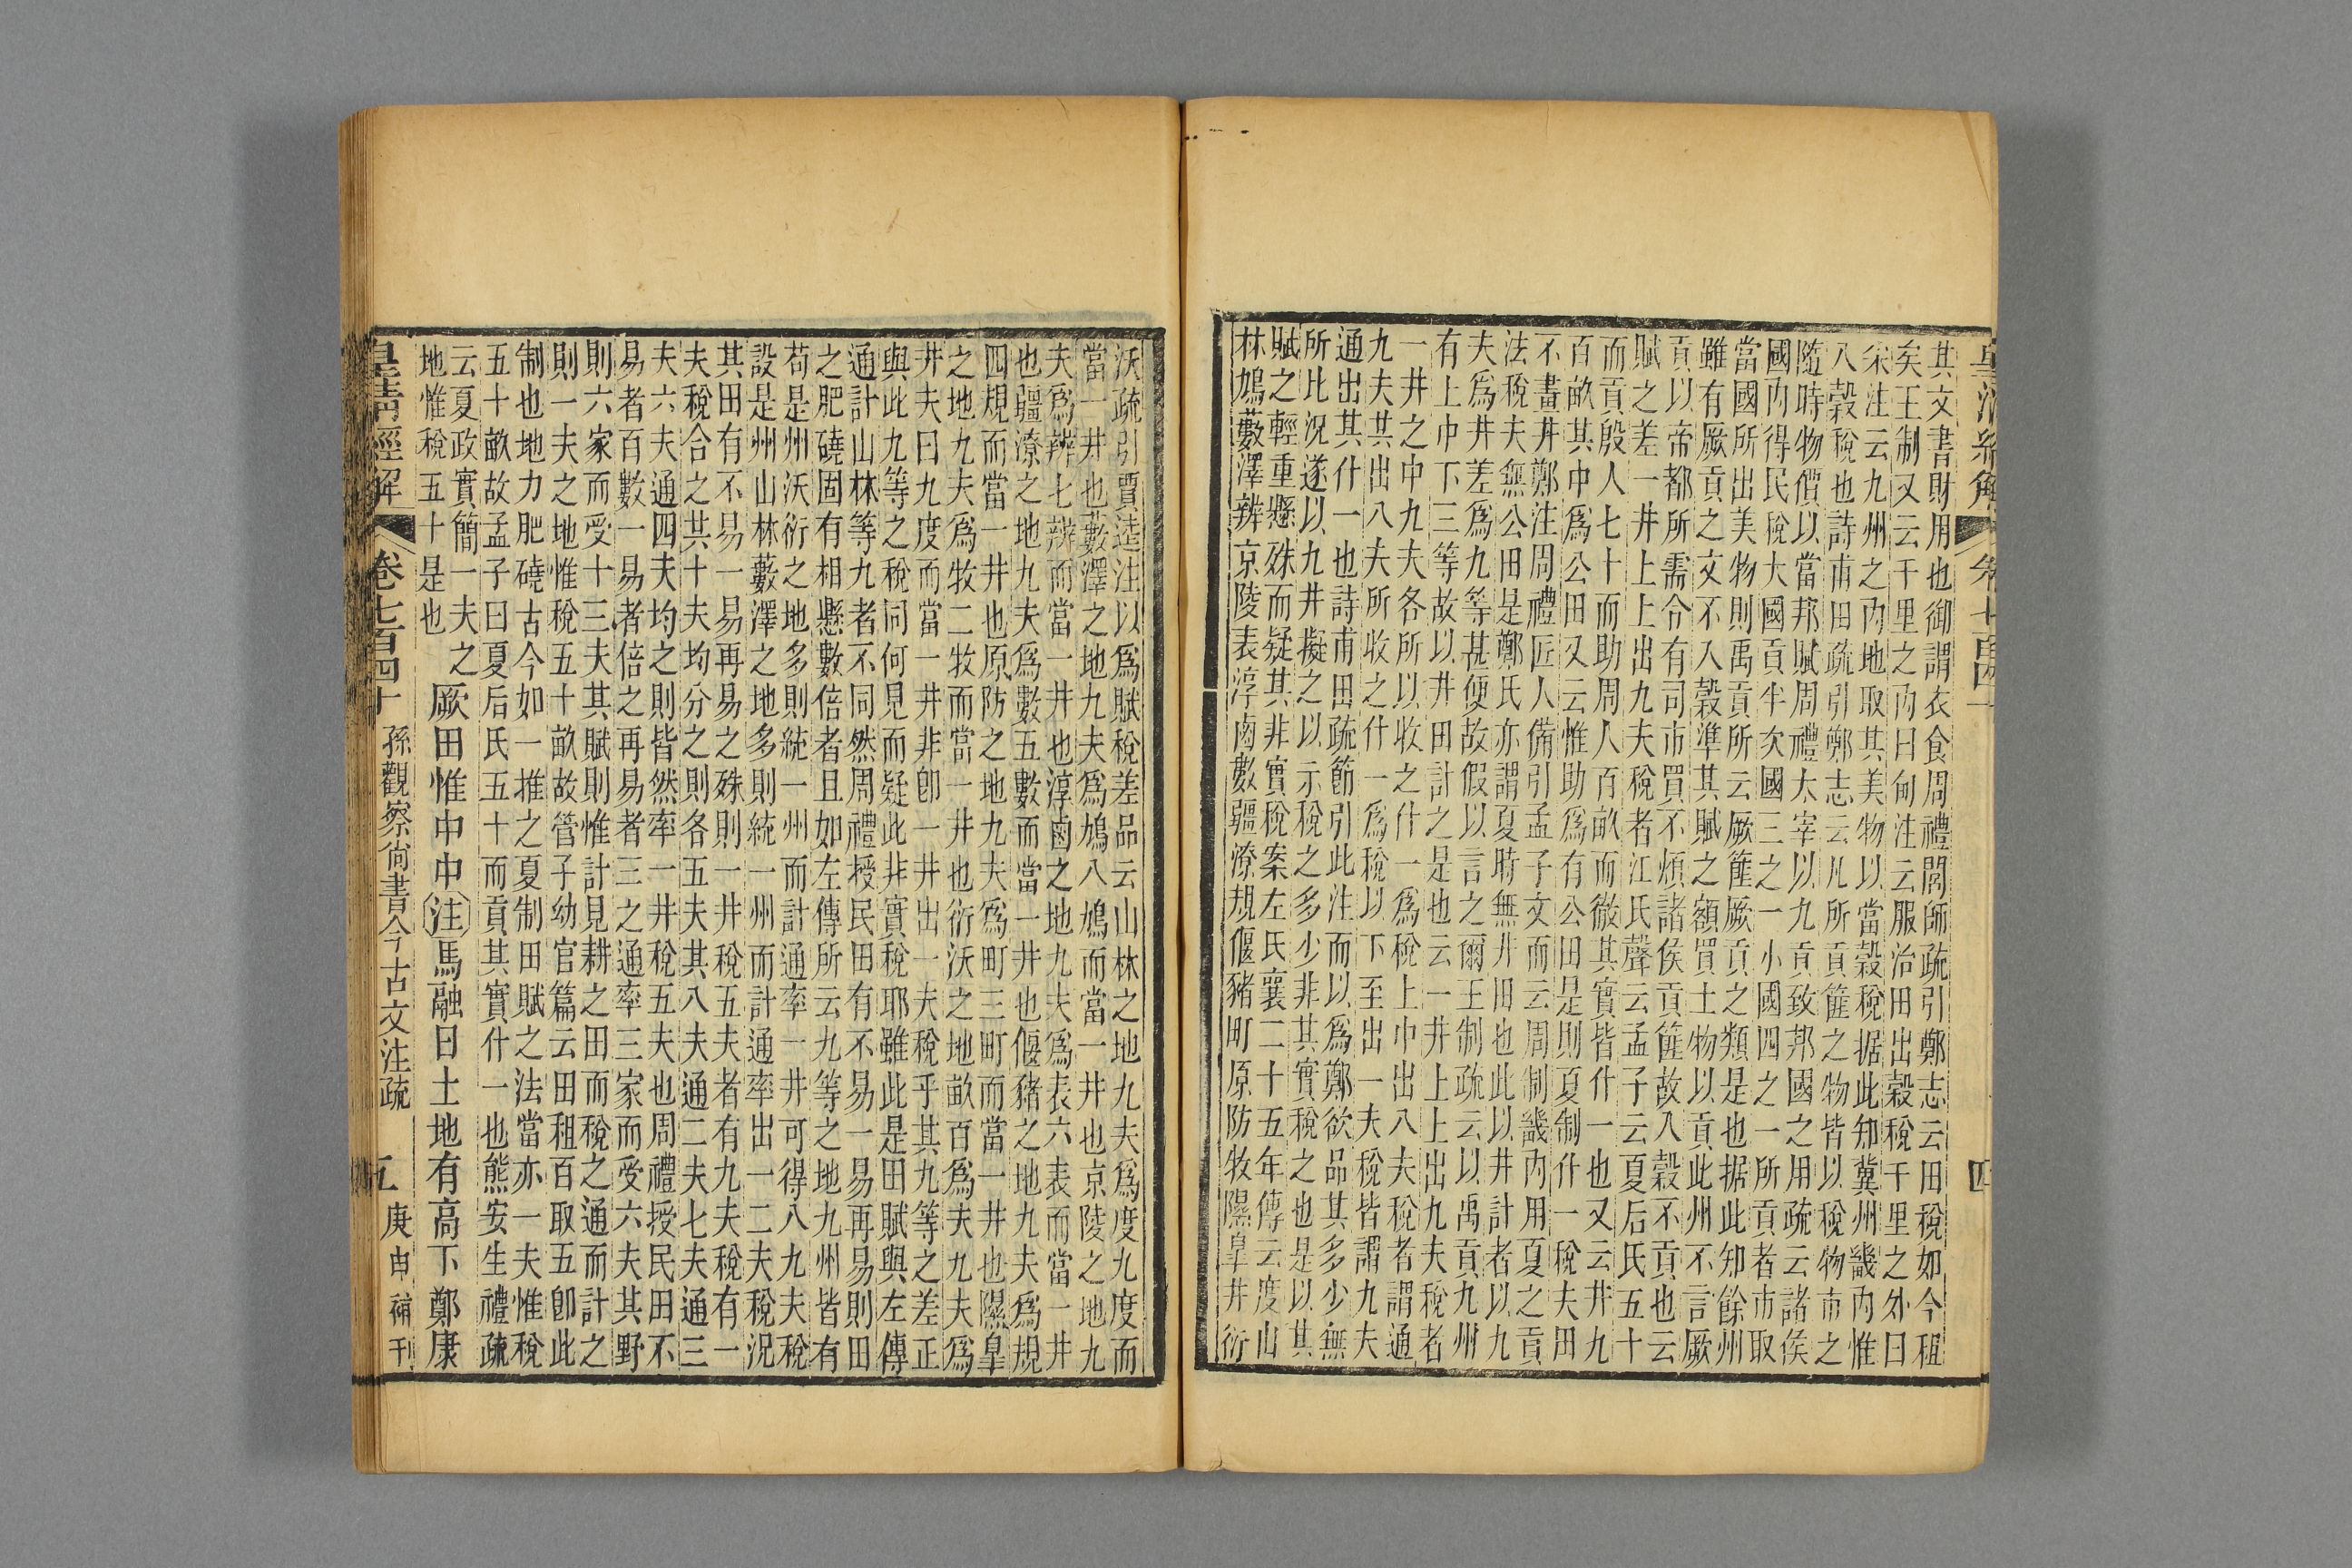 皇清經解 卷七百四十 四
其文書財用也御謂衣食周禮閭師疏引鄭志云田稅如今租
矣王制又云千里之內曰甸注云服治田出穀稅千里之外曰
采注云九州之內地取其美物以當穀稅据此知冀州畿內惟
入穀稅也詩甫田疏引鄭志云凡所貢篚之物皆以稅物市之
隨時物價以當邦賦周禮大宰以九貢致邦國之用疏云諸侯
國內得民稅大國貢半次國三之一小國四之一所貢者市取
當國所出美物則禹貢所云厥篚厥貢之類是也据此知餘州
雖有厥貢之文不入穀準其賦之額買土物以貢此州不言厥
貢以帝都所需令有司市買不煩諸侯貢篚故入穀不貢也云
賦之差一井上上出九夫稅者江氏聲云孟子云夏后氏五十
而貢殷人七十而助周人百畝而徹其實皆什一也又云井九
百畝其中爲公田又云惟助爲有公田是則夏制什一稅夫田
不畫井鄭注周禮匠人備引孟子文而云周制畿內用夏之貢
法稅夫無公田是鄭氏亦謂夏時無井田也此以井計者以九
夫爲井差爲九等甚便故假以言之爾王制疏云以禹貢九州
有上中下三等故以井田計之是也云一井上上出九夫稅者
一井之中九夫各所以收之什一爲稅上中出八夫稅者謂通
九夫其出八夫所收之什一爲稅以下至出一夫稅皆謂九夫
通出其什一也詩甫田疏節引此注而以爲鄭欲品其多少無
所比況遂以九井擬之以示稅之多少非其實稅之也是以其
賦之輕重懸殊而疑其非實稅案左氏襄二十五年傳云度山
林鳩藪澤辨京陵表淳鹵數疆潦規偃豬町原防牧隰皐井衍
沃疏引賈逵注以爲賦稅差品云山林之地九夫爲度九度而
當一井也藪澤之地九夫爲鳩八鳩而當一井也京陵之地九
夫爲辨七辨而當一井也淳鹵之地九夫爲表六表而當一井
也疆潦之地九夫爲數五數而當一井也偃豬之地九夫爲規
四規而當一井也原防之地九夫爲町三町而當一井也隰皐
之地九夫爲牧二牧而當一井也衍沃之地畝百爲夫九夫爲
井夫曰九度而當一井非卽一井出一夫稅乎其九等之差正
與此九等之稅同何見而疑此非實稅耶雖此是田賦與左傳
通計山林等九者不同然周禮授民田有不易一易再易則田
之肥磽固有相懸數倍者且如左傳所云九等之地九州皆有
苟是州沃衍之地多則統一州而計通率一井可得八九夫稅
設是州山林藪澤之地多則統一州而計通率出一二夫稅況
其田有不易一易再易之殊則一井稅五夫者有九夫稅有一
夫稅合之其十夫均分之則各五夫其八夫通二夫七夫通三
夫六夫通四夫均之則皆然率一井稅五夫也周禮授民田不
易者百數一易者倍之再易者三之通率三家而受六夫其野
則六家而受十三夫其賦則惟計見耕之田而稅之通而計之
則一夫之地惟稅五十畝故管子幼官篇云田租百取五卽此
制也地力肥磽古今如一推之夏制田賦之法當亦一夫惟稅
五十畝故孟子曰夏后氏五十而貢其實什一也熊安生禮疏
云夏政實簡一夫之
地惟稅五十是也
厥田惟中中注馬融曰土地有高下鄭康
皇清經解 卷七百四十 孫觀察尙書今古文注疏 五 庚申補刊